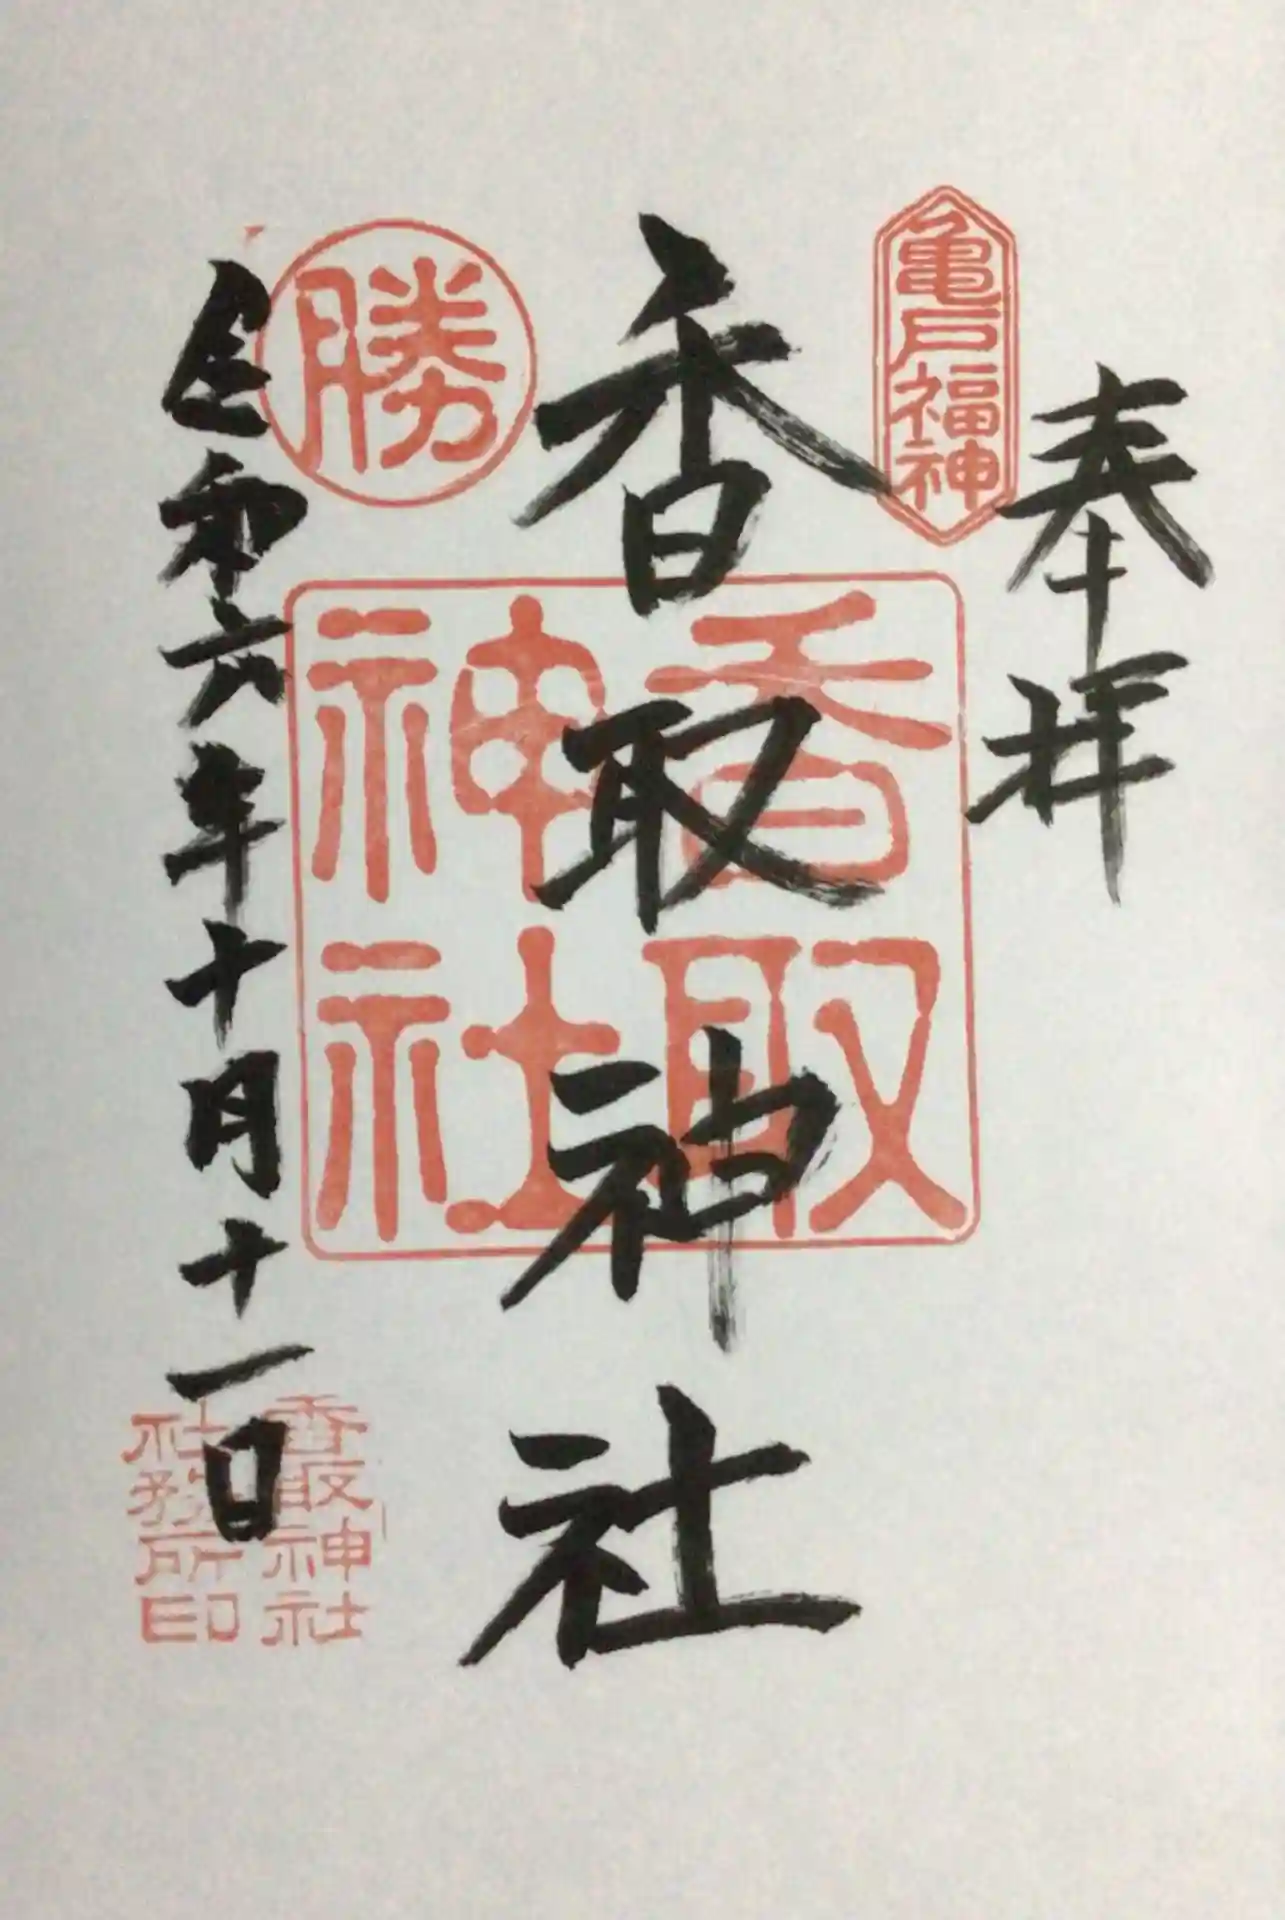 奉拝
亀戸福神
香取神社
香取神社
勝
令和六年十月十一日
香取神社
社務所印